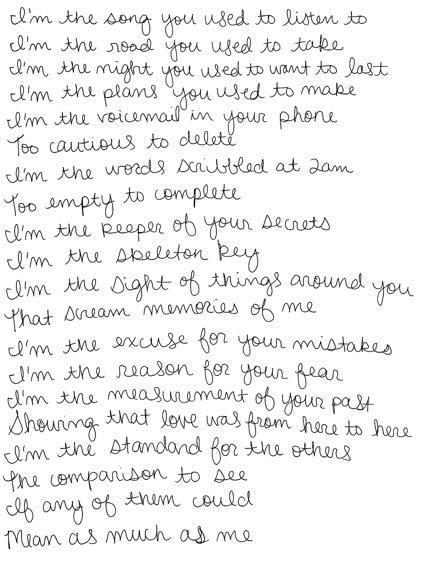 I'm the song you used to listen to
I'm the road you used to take
I'm the night you used to want to last
I'm the plans you used to make
I'm the voicemail in your phone
Too cautious to delete
I'm the words scribbled at 2am
Too empty to complete
I'm the keeper of your secrets
I'm the skeleton key
I'm the sight of things around you
That scream memories of me
I'm the excuse for your mistakes
I'm the reason for your fear
I'm the measurement of your past
Showing that love was from here to here
I'm the standard for the others
The comparison to see
If any of them could
Mean as much as me